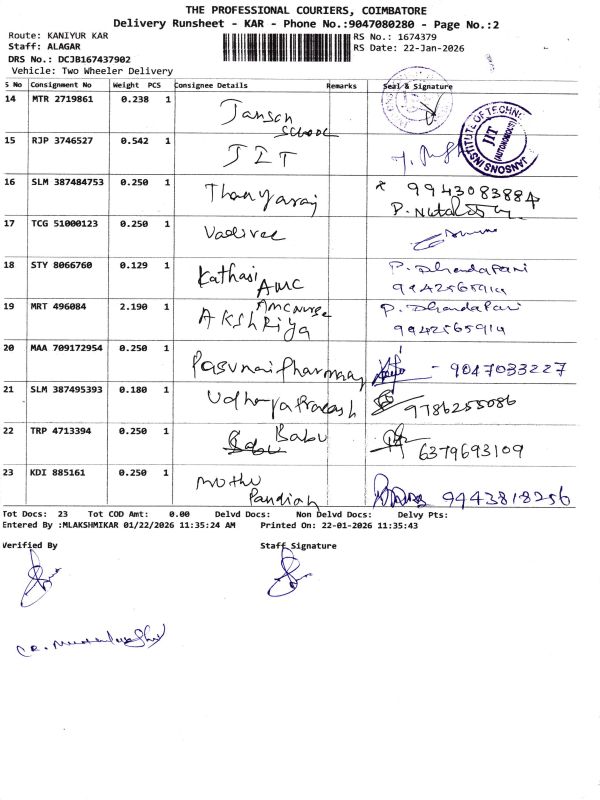 THE PROFESSIONAL COURIERS, COIMBATORE
Delivery Runsheet - KAR - Phone No.:9047080280 - Page No.:2
Route: KANIYUR KAR
RS No.: 1674379
Staff: ALAGAR
RS Date: 22-Jan-2026
DRS No.: DCJB167437902
Vehicle: Two Wheeler Delivery
S No Consignment No Weight PCS Consignee Details Remarks Seal & Signature
14 MTR 2719861 0.238 1 Janson School
15 RJP 3746527 0.542 1 JIT
JANSONS INSTITUTE OF TECHN
JIT
(AUTONOMOUS)
16 SLM 387484753 0.250 1 Thangaraj 9943083884
17 TCG 51000123 0.250 1 Vadivel
18 STY 8066760 0.129 1 Kathasi AMC P. Dhandapani
9942565914
19 MRT 496084 2.190 1 AKSHRIYA P. Dhandapani
9942565914
20 MAA 709172954 0.250 1 Pasumai Pharmacy - 9047033227
21 SLM 387495393 0.180 1 Udhayaprakash 9786255086
22 TRP 4713394 0.250 1 Babu 6379693109
23 KDI 885161 0.250 1 Muthu Pandiah 9943818256
Tot Docs: 23 Tot COD Amt: 0.00 Delvd Docs: Non Delvd Docs: Delvy Pts:
Entered By :MLAKSHMIKAR 01/22/2026 11:35:24 AM Printed On: 22-01-2026 11:35:43
Verified By Staff Signature